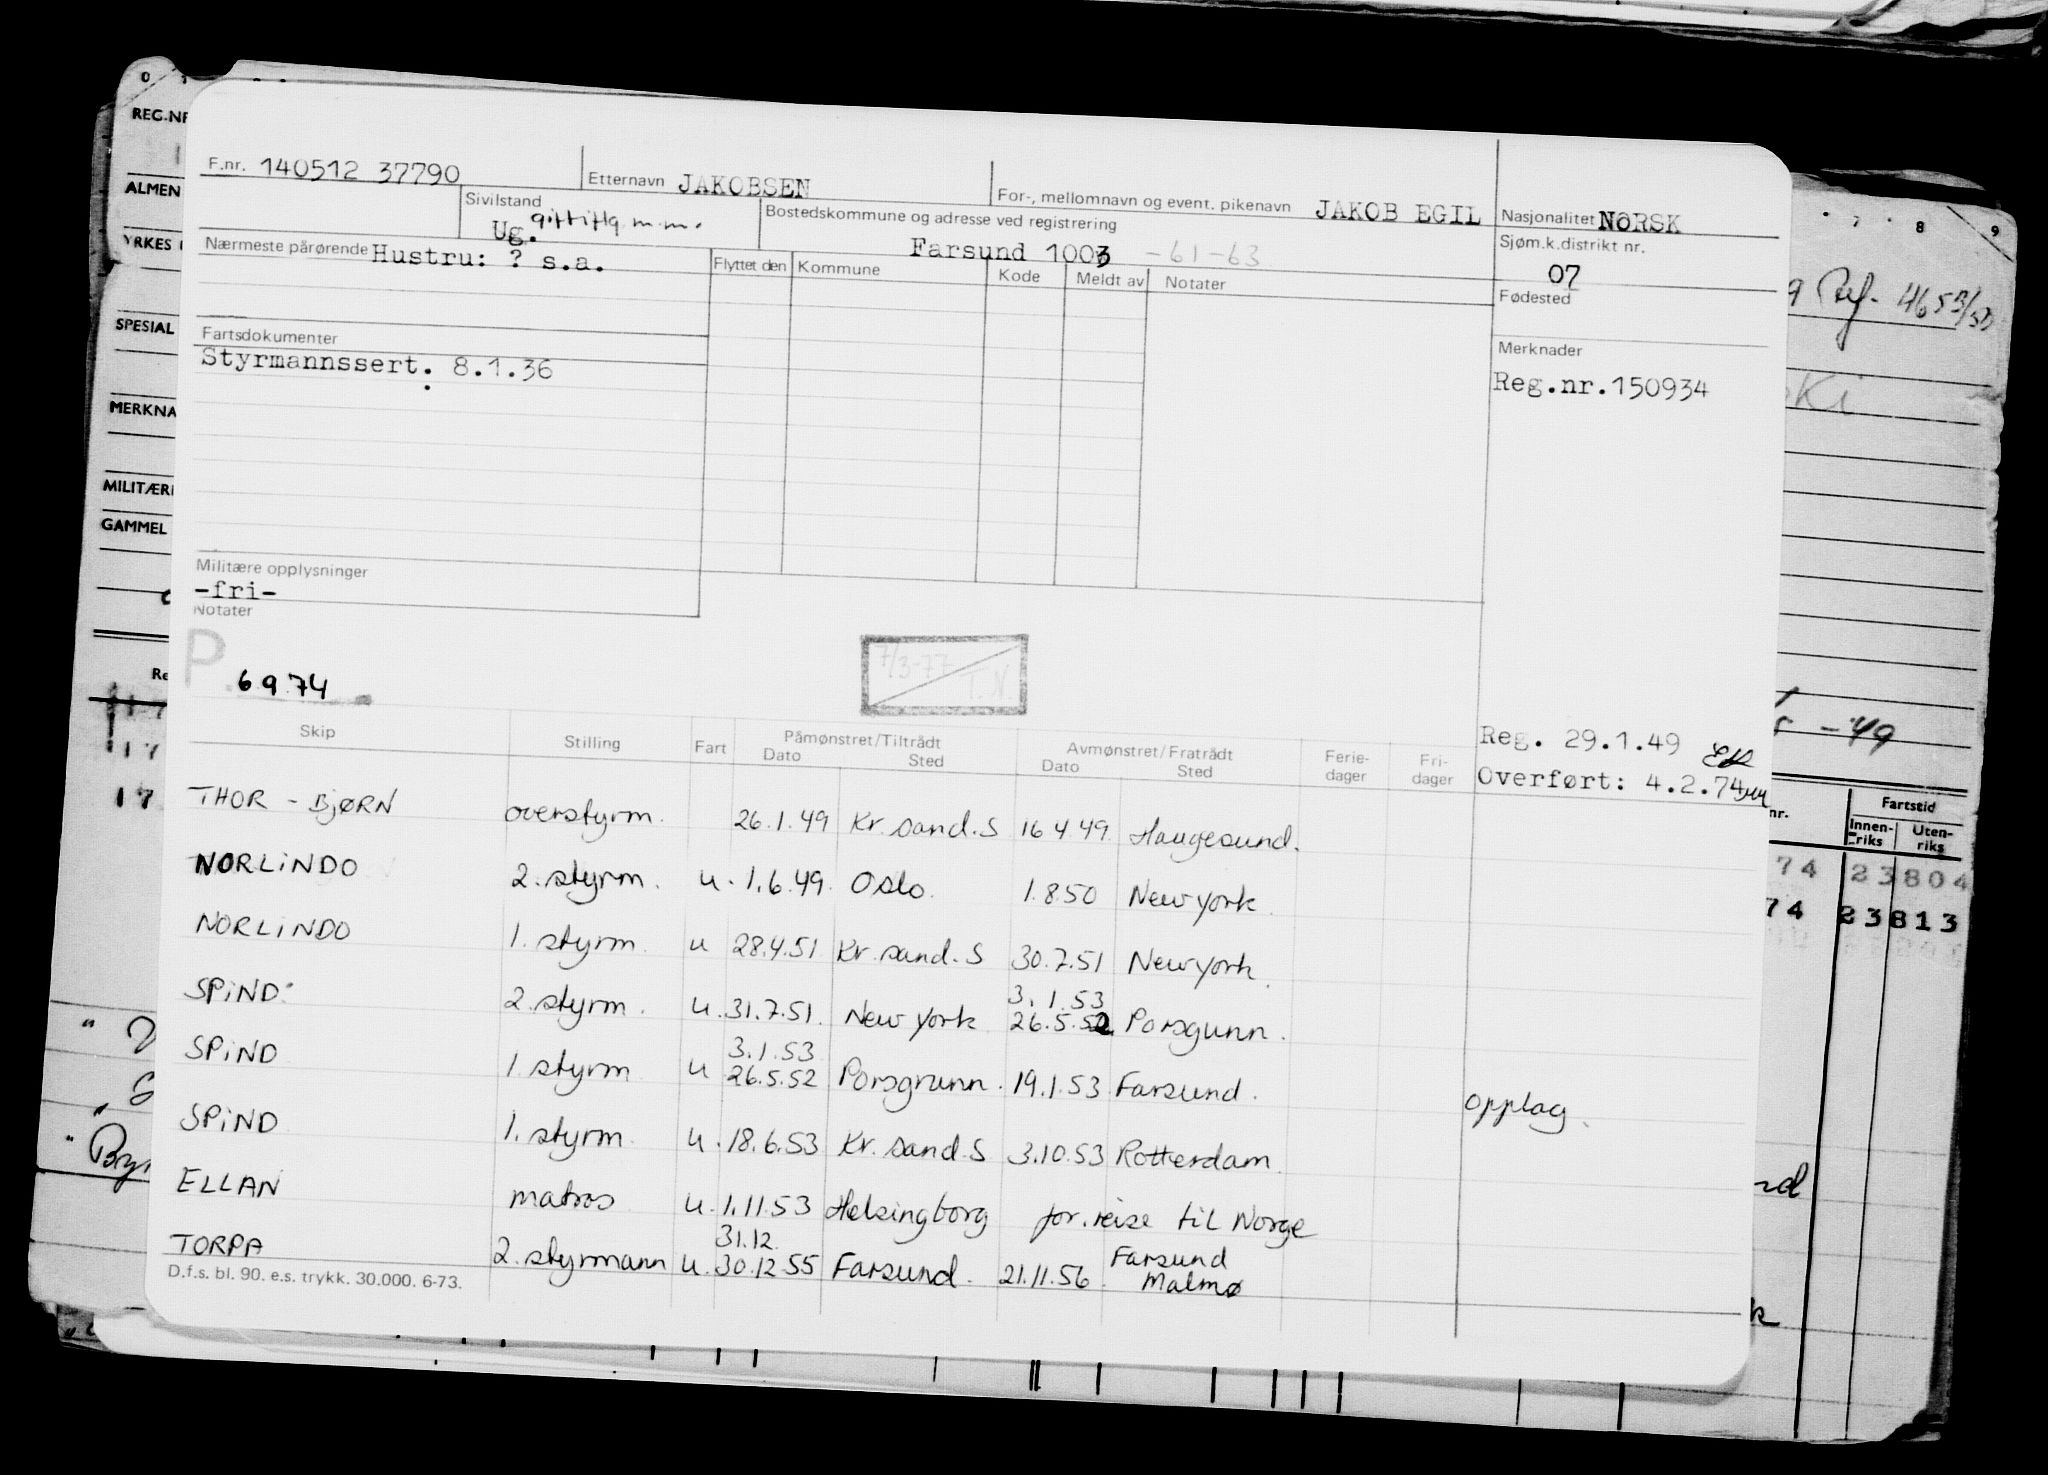 F.nr. 140512 37790 Etternavn JAKOBSEN For-, mellomnavn og event. pikenavn JAKOB EGIL Nasjonalitet NORSK
Sivilstand Ug. Bostedskommune og adresse ved registrering Farsund 1003 -61-63 Sjøm.k.distrikt nr. 07
Nærmeste pårørende Hustru: ? s.a. Flyttet den Kommune Kode Meldt av Notater Fødested
Fartsdokumenter Merknader
Styrmannssert. 8.1.36 Reg.nr.150934
Militære opplysninger
-fri-
Notater
P
6.9.74 7/3-77 T.N.
Reg. 29.1.49
Overført: 4.2.74
Skip Stilling Fart Påmønstret/Tiltrådt Avmønstret/Fratrådt Ferie- Fri-
Dato Sted Dato Sted dager dager
THOR - BJØRN overstyrm. 26.1.49 Kr.sand.S 16.4.49 Haugesund.
NORLINDO 2.styrm. u. 1.6.49. Oslo. 1.8.50 New york.
NORLINDO 1. styrm. u 28.4.51 Kr.sand.S 30.7.51 New york.
3.1.53
SPIND 2.styrm. u. 31.7.51. New york 26.5.52 Porsgunn.
3.1.53
SPIND 1. styrm u 26.5.52 Porsgrunn. 19.1.53 Farsund. opplag.
SPIND 1. styrm. u. 18.6.53 Kr.sand.S 3.10.53 Rotterdam
ELLAN matros u. 1.11.53 Helsingborg for.reise til Norge
31.12. Farsund
TORPA 2. styrmann u. 30.12.55 Farsund. 21.11.56. Malmø
D.f.s. bl. 90. e.s. trykk. 30.000. 6-73.
REG.NR
ALMEN
YRKES
SPESIAL
MERKNA
MILITÆR
GAMMEL
7 8 9
Ref. 465
-49
nr. Fartstid
Innen-riks Uten-riks
74 23804
74 23813